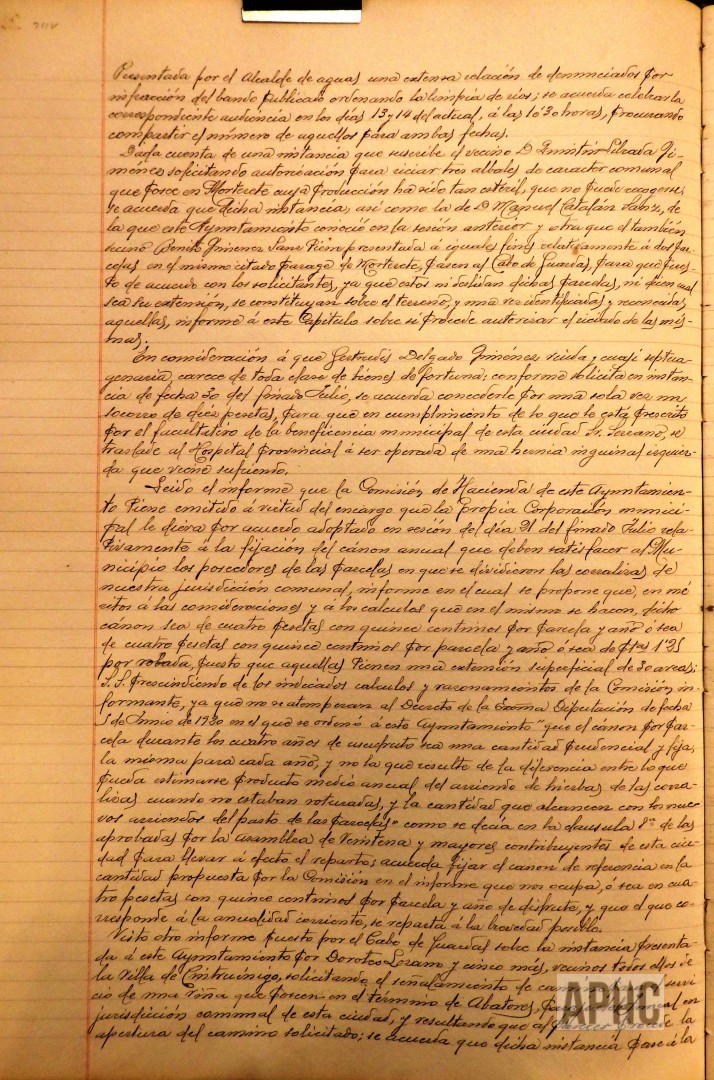 Presentada por el Alcalde de aguas una extensa relación de denunciados por
infracción del bando publicado ordenando la limpia de rios; se acuerda celebrar la
correspondiente audiencia en los días 13 y 14 del actual, á las 10'30 horas, procurando
compartir el número de aquellos para ambas fechas.
Dada cuenta de una instancia que suscribe el vecino D. Librada Ji-
menez solicitando autorización para riciar tres albales de caracter comunal
que posee en Morterete cuya producción ha sido tan estéril, que no puede recogerse,
se acuerda que dicha instancia, así como la de D. Manuel Catalán Sanz, de
la que este Ayuntamiento conoció en la sesión anterior y otra que el tambien
vecino Benito Jimenez Sanz tiene presentada á iguales fines relativamente á dos par-
celas en el mismo citado parage de Morterete, pasen al Cabo de Guardas, para que pues-
to de acuerdo con los solicitantes, ya que estos ni deslindan dichas parcelas, ni dicen cual
sea su extensión, se constituyan sobre el terreno, y una vez identificadas y reconocidas
aquellas, informe á este Capítulo sobre si procede autorizar el riciado de las mis-
mas.
En consideración á que Gertrudis Delgado Jiménez viuda y cuasi septua-
genaria, carece de toda clase de bienes de fortuna; conforme solicita en instan-
cia de fecha 30 del finado Julio, se acuerda concederle por una sola vez un
socorro de diez pesetas, para que en cumplimiento de lo que le está prescrito
por el facultativo de la beneficencia municipal de esta ciudad Sr. Serrano, se
traslade al Hospital Provincial á ser operada de una hernia inguinal izquier-
da que viene sufriendo.
Leido el informe que la Comisión de Hacienda de este Ayuntamien-
to tiene emitido á virtud del encargo que la propia Corporación munici-
pal le diera por acuerdo adoptado en sesión del día 21 del finado Julio rela-
tivamente á la fijación del cánon anual que deben satisfacer al Mu-
nicipio los poseedores de las parcelas en que se dividieron las corralizas de
nuestra jurisdicción comunal, informe en el cual se propone que, en mé-
ritos á las consideraciones y á los calculos que en el mismo se hacen, dicho
cánon sea de cuatro pesetas con quince centimos por parcela y año ó sea
de cuatro pesetas con quince centimos por parcela y año ó sea de ptas 1'25
por robada, puesto que aquellas tienen una extensión superficial de 30 areas;
S.S. prescindiendo de los indicados calculos y razonamientos de la Comisión in-
formante, ya que no se atemperan al Decreto de la Excma Diputación de fecha
5 de Junio de 1920 en el que se ordenó á este Ayuntamiento "que el cánon por par-
cela durante los cuatro años de usufruto sea una cantidad prudencial y fija,
la misma para cada año, y no la que resulte de la diferencia entre lo que
pueda estimarse producto medio anual del arriendo de hierbas de las corra-
lizas cuando no estaban roturadas, y la cantidad que alcancen con los nue-
vos arriendos del pasto de las parcelas" como se decía en la clausula 8ª de las
aprobadas por la asamblea de Veintena y mayores contribuyentes de esta ciu-
dad para llevar á efecto el reparto; acuerda fijar el canon de referencia en la
cantidad propuesta por la Comisión en el informe que nos ocupa, ó sea en cua-
tro pesetas con quince centimos por parcela y año de disfrute, y que el que co-
rresponde á la anualidad corriente, se reparta á la brevedad posible.
Visto otro informe puesto por el Cabo de Guardas sobre la instancia presenta-
da á este Ayuntamiento por Doroteo Lozano y cinco más, vecinos todos ellos de
la Villa de Cintruénigo, solicitando el señalamiento de servi-
cio de una viña que poseen en el término de Abatores, en
jurisdicción comunal de esta ciudad, y resultando que la
apertura del camino solicitado; se acuerda que dicha instancia pase á la
APHC